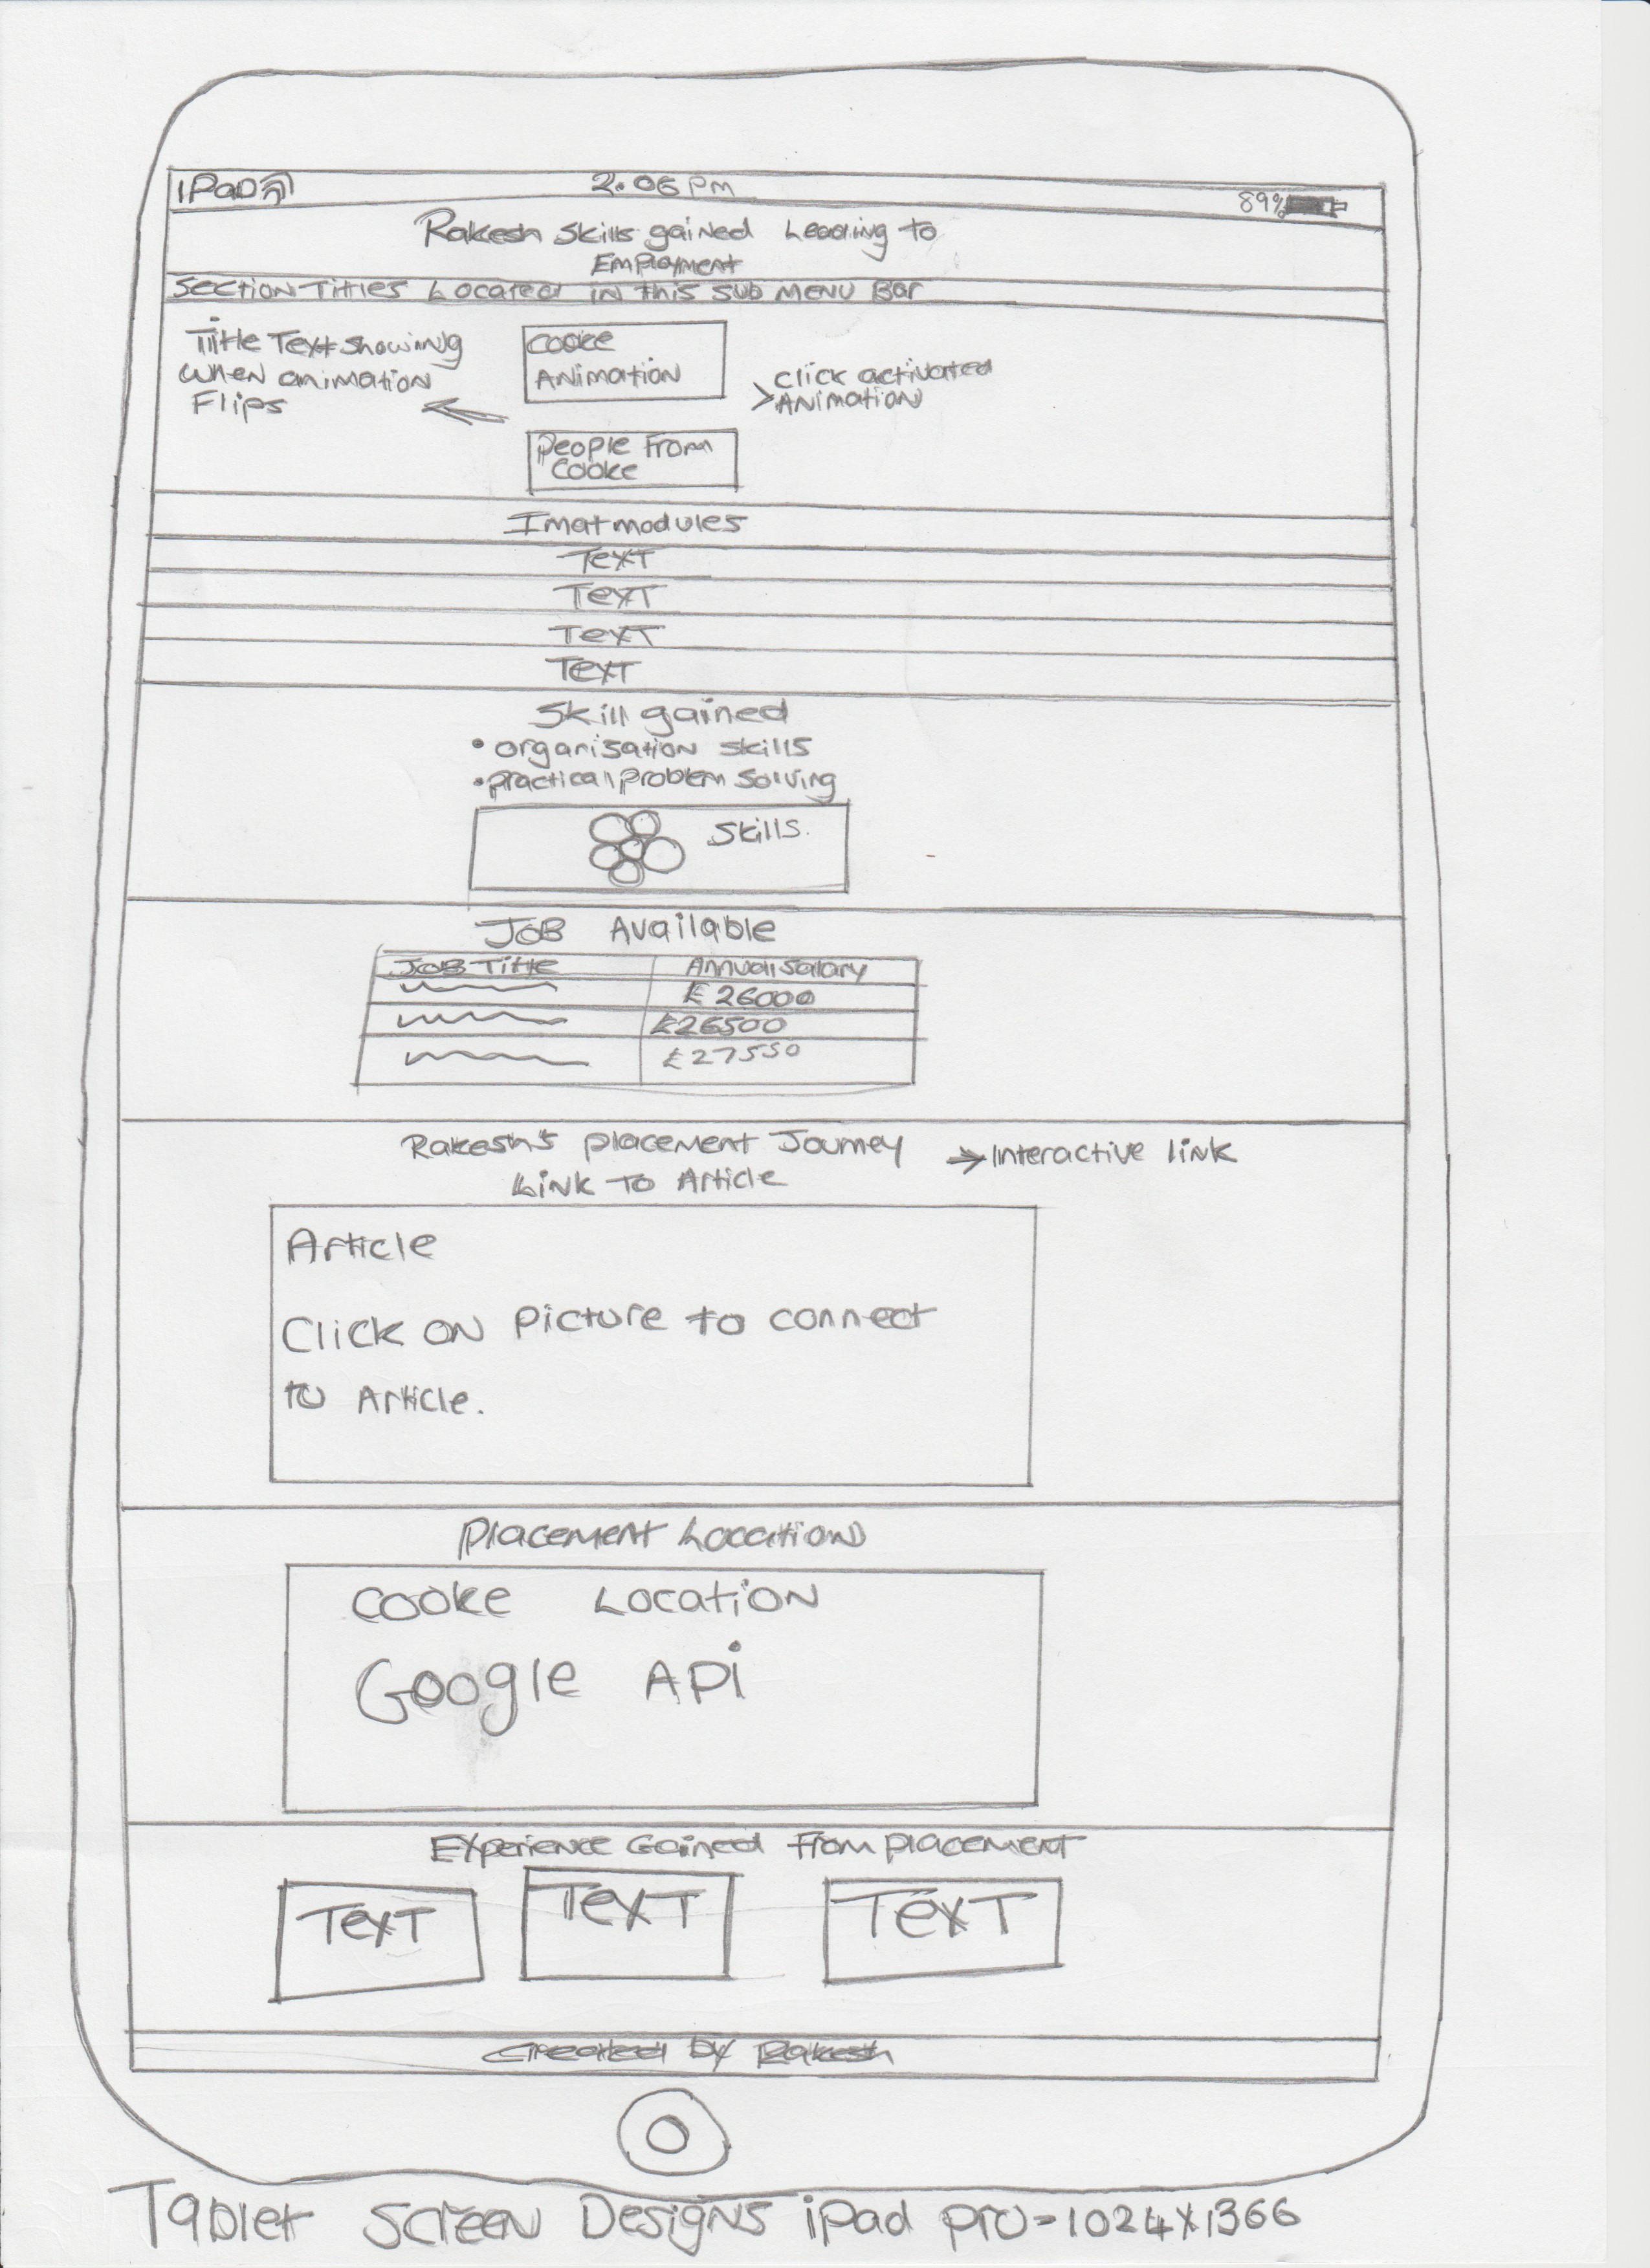 iPad
2.06 PM
89%
Rakesh Skills gained Leading to
Employment
Section Titles Located in this sub menu Bar
Title Text showing
when animation
Flips
Cooke
Animation
click activated
Animation
People from
Cooke
Imat modules
Text
Text
Text
Text
Skill gained
• organisation skills
• practical problem solving
Skills.
Job Available
Job Title Annual Salary
£26000
£26500
£27550
Rakesh's placement Journey → Interactive link
Link To Article
Article
Click on picture to connect
to Article.
Placement Location
Cooke Location
Google Api
Experience Gained from placement
Text Text Text
Created by Rakesh
Tablet Screen Designs iPad pro = 1024x1366